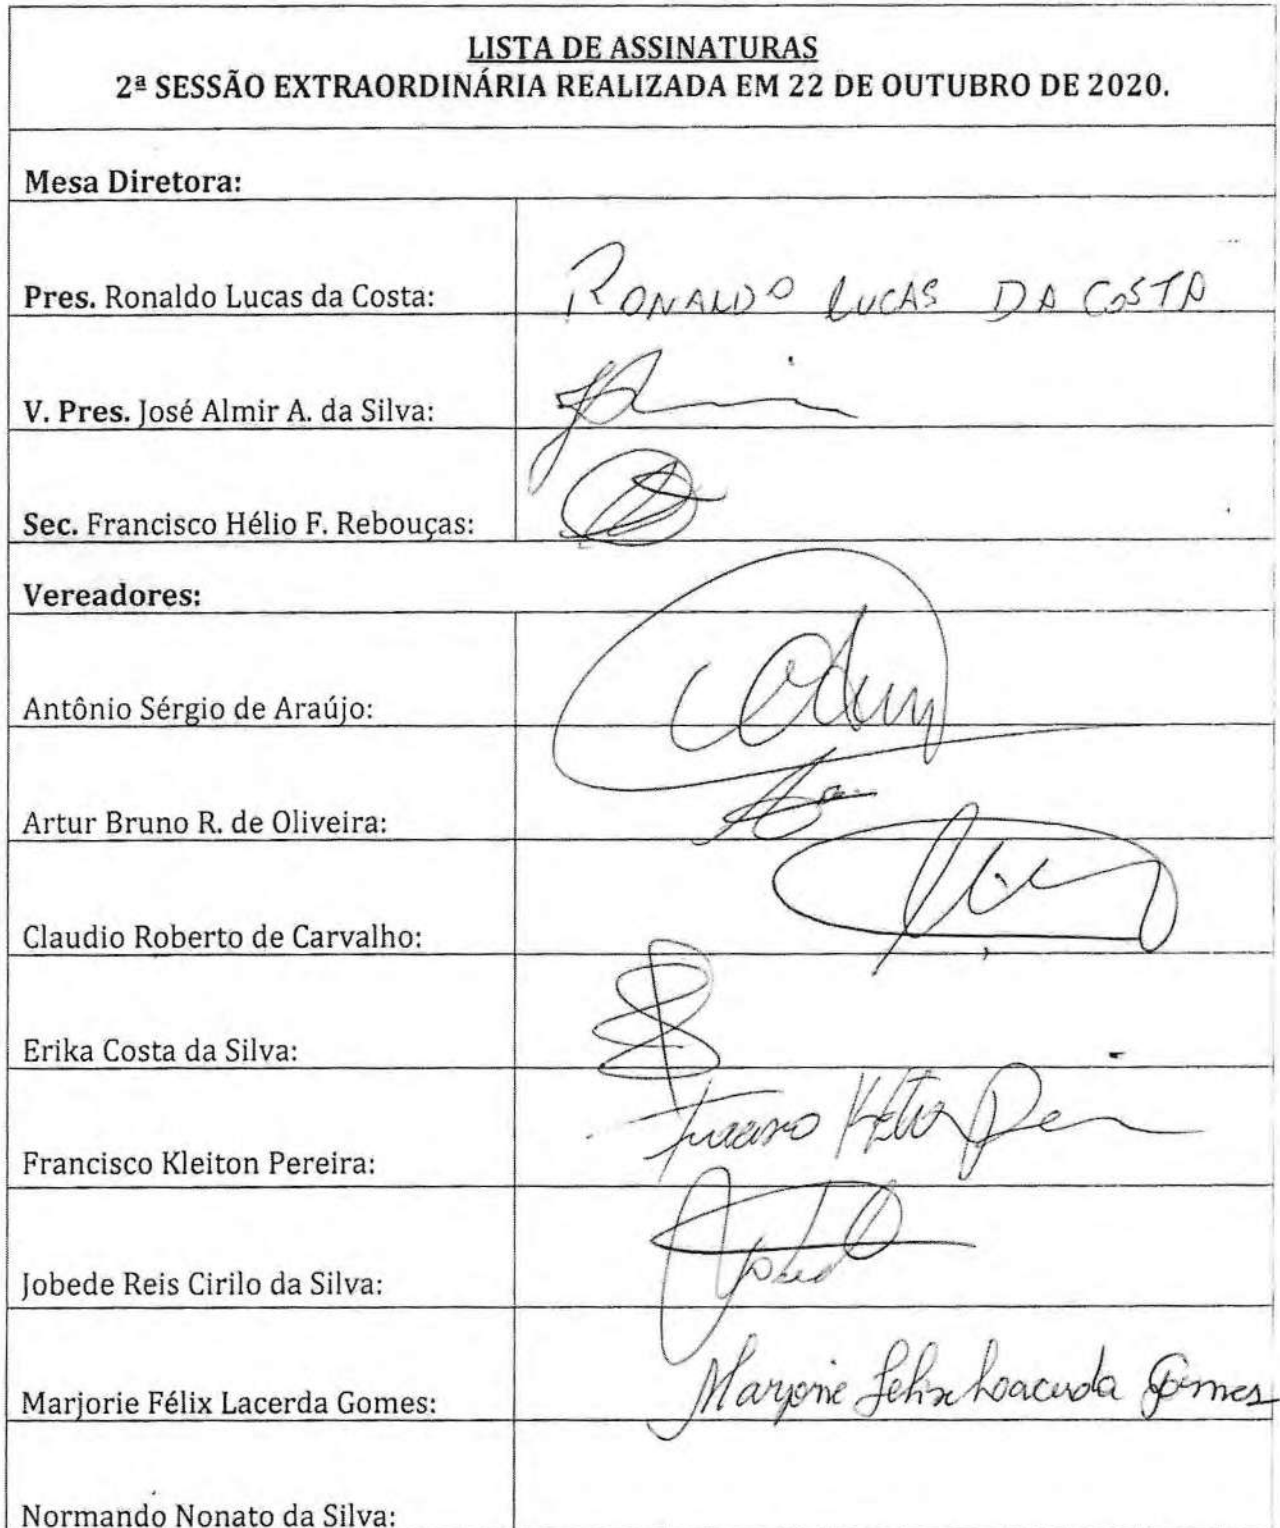 LISTA DE ASSINATURAS
2ª SESSÃO EXTRAORDINÁRIA REALIZADA EM 22 DE OUTUBRO DE 2020.
Mesa Diretora:
Pres. Ronaldo Lucas da Costa: RONALDO LUCAS DA COSTA
V. Pres. José Almir A. da Silva:
Sec. Francisco Hélio F. Rebouças:
Vereadores:
Antônio Sérgio de Araújo:
Artur Bruno R. de Oliveira:
Claudio Roberto de Carvalho:
Erika Costa da Silva:
Francisco Kleiton Pereira:
Jobede Reis Cirilo da Silva:
Marjorie Félix Lacerda Gomes: Marjorie Felix Lacerda Gomes
Normando Nonato da Silva: